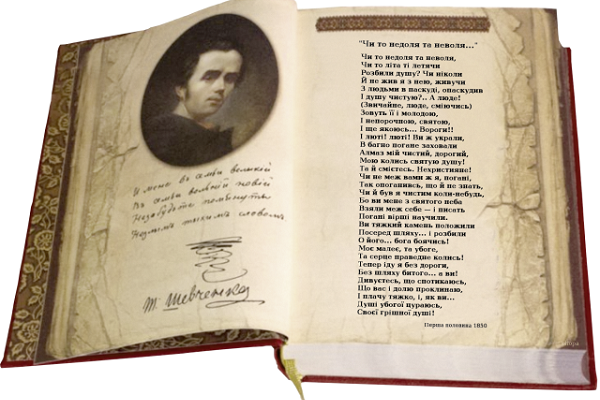 І мене в сем'ї великій
В сем'ї вольній новій
Незабудьте помьянуть
Незлымъ тыхымъ словомъ
Т. Шевченко
"Чи то недоля та неволя..."
Чи то недоля та неволя,
Чи то літа ті летячи
Розбили душу? Чи ніколи
Й не жив я з нею, живучи
З людьми в паскуді, опаскудив
І душу чистую?.. А люде!
(Звичайне, люде, сміючись)
Зовуть її і молодою,
І непорочною, святою,
І ще якоюсь... Вороги!!
І люті! люті! Ви ж украли,
В багно погане заховали
Алмаз мій чистий, дорогий,
Мою колись святую душу!
Та й смієтесь. Нехристияне!
Чи не меж вами ж я, погані,
Так опоганивсь, що й не знать,
Чи й був я чистим коли-небудь,
Бо ви мене з святого неба
Взяли меж себе — і писать
Погані вірші научили.
Ви тяжкий камень положили
Посеред шляху... і розбили
О його... бога боячись!
Моє малеє, та убоге,
Та серце праведне колись!
Тепер іду я без дороги,
Без шляху битого... а ви!
Дивуєтесь, що спотикаюсь,
Що вас і долю проклинаю,
І плачу тяжко, і, як ви...
Душі убогої цураюсь,
Своєї грішної душі!
Перша половина 1850